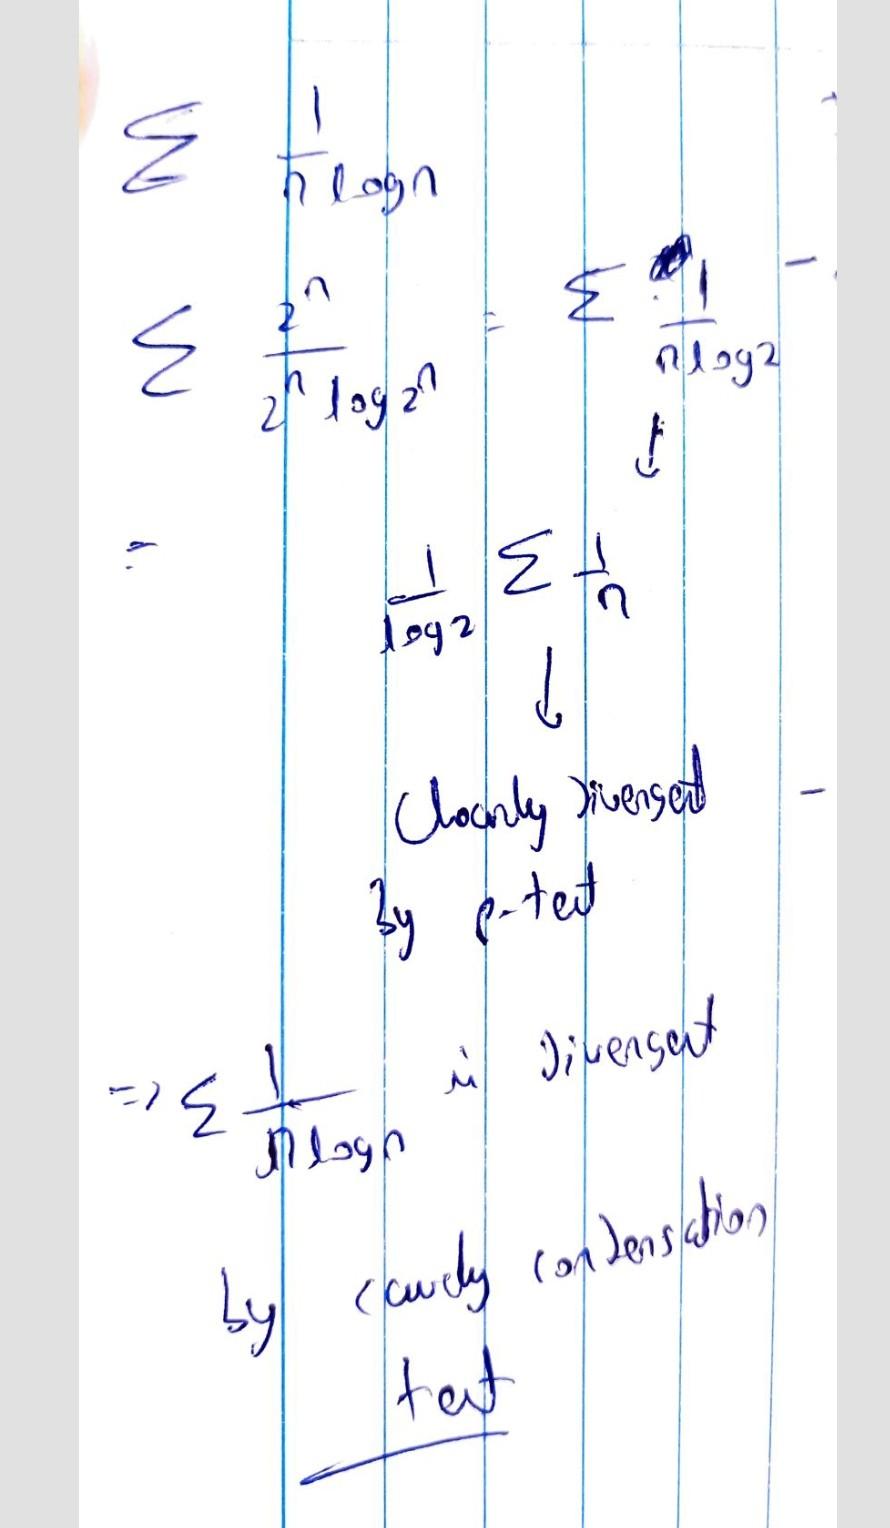 Σ 1/(n log n)
Σ 2^n/(2^n log 2^n) = Σ 1/(n log 2)
↓
= 1/(log 2) Σ 1/n
↓
Clearly Divergent
By p-test
=> Σ 1/(n log n) is Divergent
by cauchy condensation
test